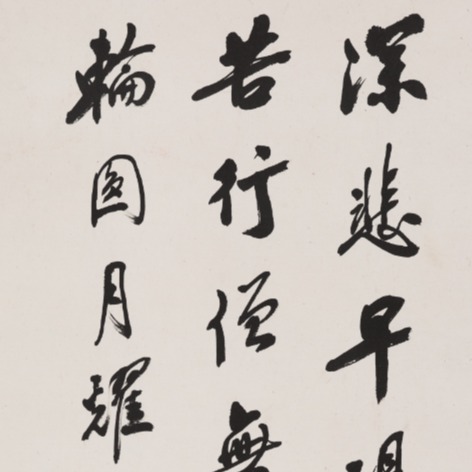 深悲早現
苦行僧無
輪圓月耀